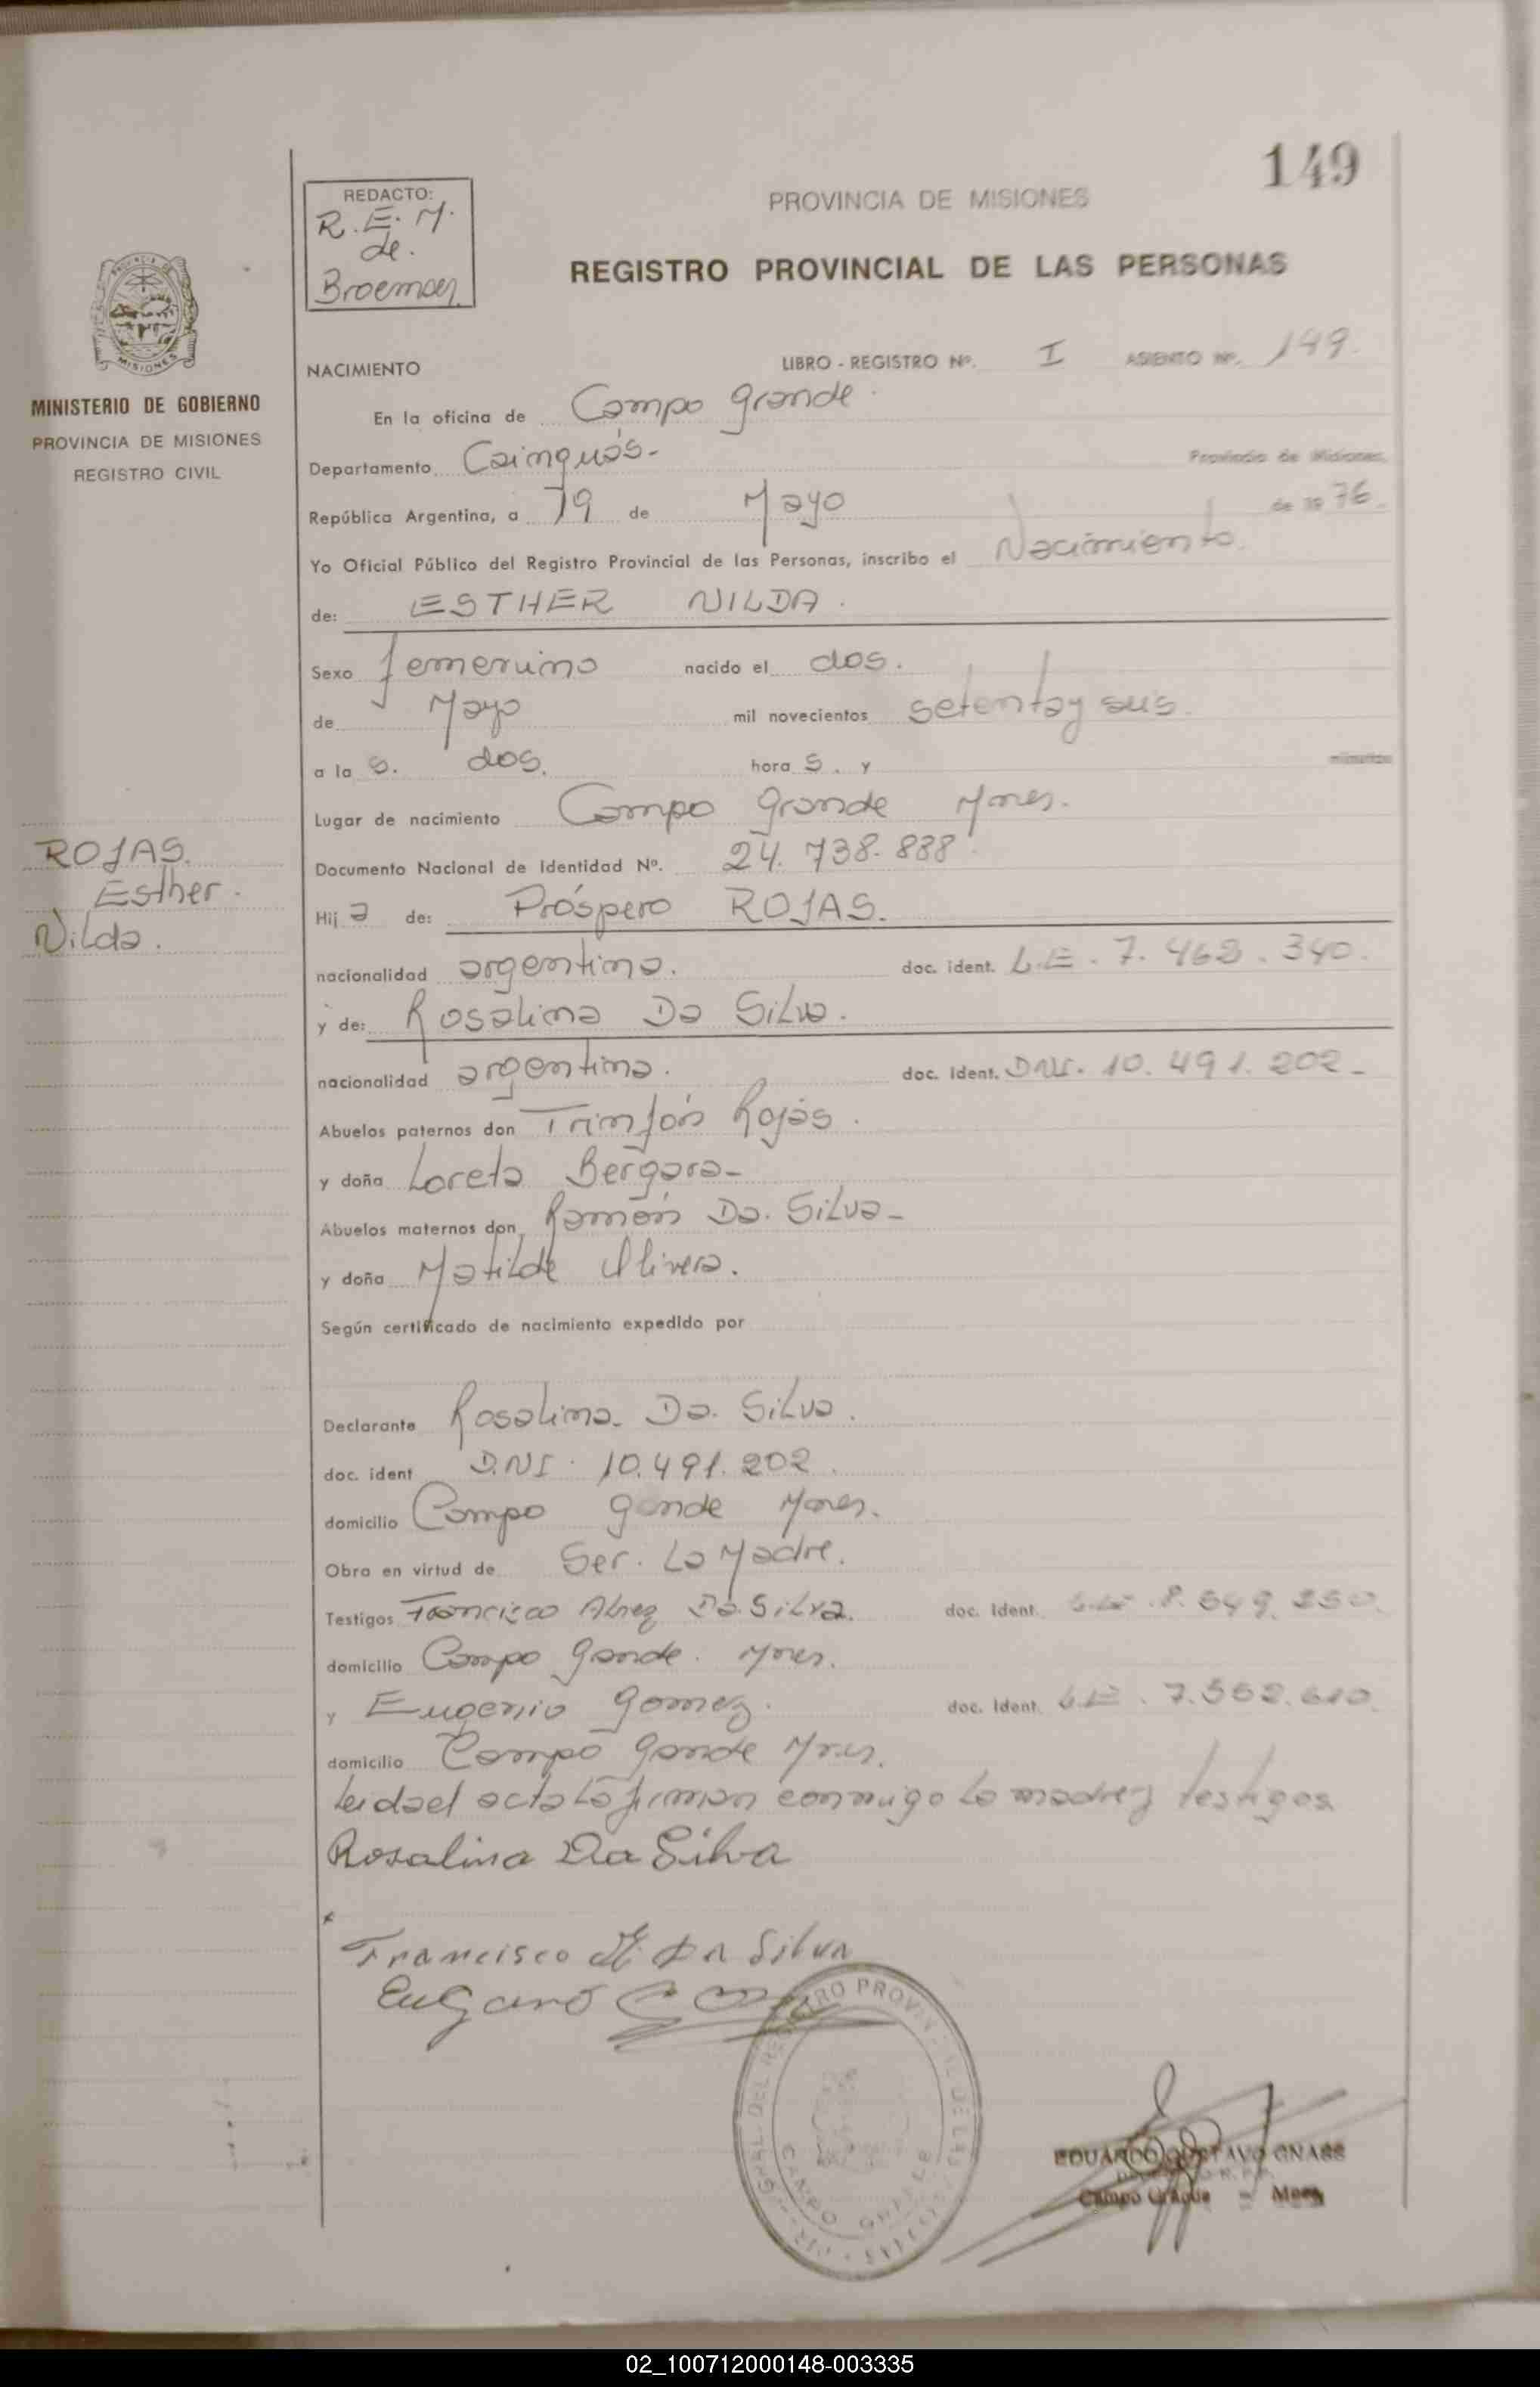 149
REDACTO:
R. E. M.
de.
Broemser
PROVINCIA DE MISIONES
REGISTRO PROVINCIAL DE LAS PERSONAS
MISIONES
MINISTERIO DE GOBIERNO
PROVINCIA DE MISIONES
REGISTRO CIVIL
NACIMIENTO LIBRO - REGISTRO Nº. I ASIENTO Nº. 149.
En la oficina de Campo Grande.
Departamento Cainguás- Provincia de Misiones,
República Argentina, a 19 de Mayo de 19 76.
Yo Oficial Público del Registro Provincial de las Personas, inscribo el Nacimiento.
de: ESTHER NILDA.
Sexo femenino nacido el dos.
de Mayo mil novecientos setenta y seis.
a la s. dos. hora s. y minutos
Lugar de nacimiento Campo Grande Mnes.
Documento Nacional de Identidad Nº. 24.738.888
ROJAS.
Esther.
Nilda.
Hij a de: Próspero ROJAS.
nacionalidad argentina. doc. ident. L.E. 7.463.340.
y de: Rosalina Da Silva.
nacionalidad argentina. doc. ident. DNI. 10.491.202-
Abuelos paternos don Rojas.
y doña Loreta Bergara-
Abuelos maternos don Ramón Da. Silva-
y doña Matilde Olivera.
Según certificado de nacimiento expedido por
Declarante Rosalina. Da. Silva.
doc. ident D.NI. 10.491.202.
domicilio Campo Gande Mnes.
Obra en virtud de Ser. La Madre.
Testigos Francisco Da Silva. doc. ident.
domicilio Campo Gande. Mnes.
y Eugenio Gomez. doc. ident. L.E. 7.
domicilio Campo Gande Mnes.
Leida el acta La firman conmigo La madre y testigos
Rosalina Da Silva
Francisco Da Silva
EDUARDO GUSTAVO GNASS
Campo Grande - Mnes
CAMPO GRANDE
02_100712000148-003335